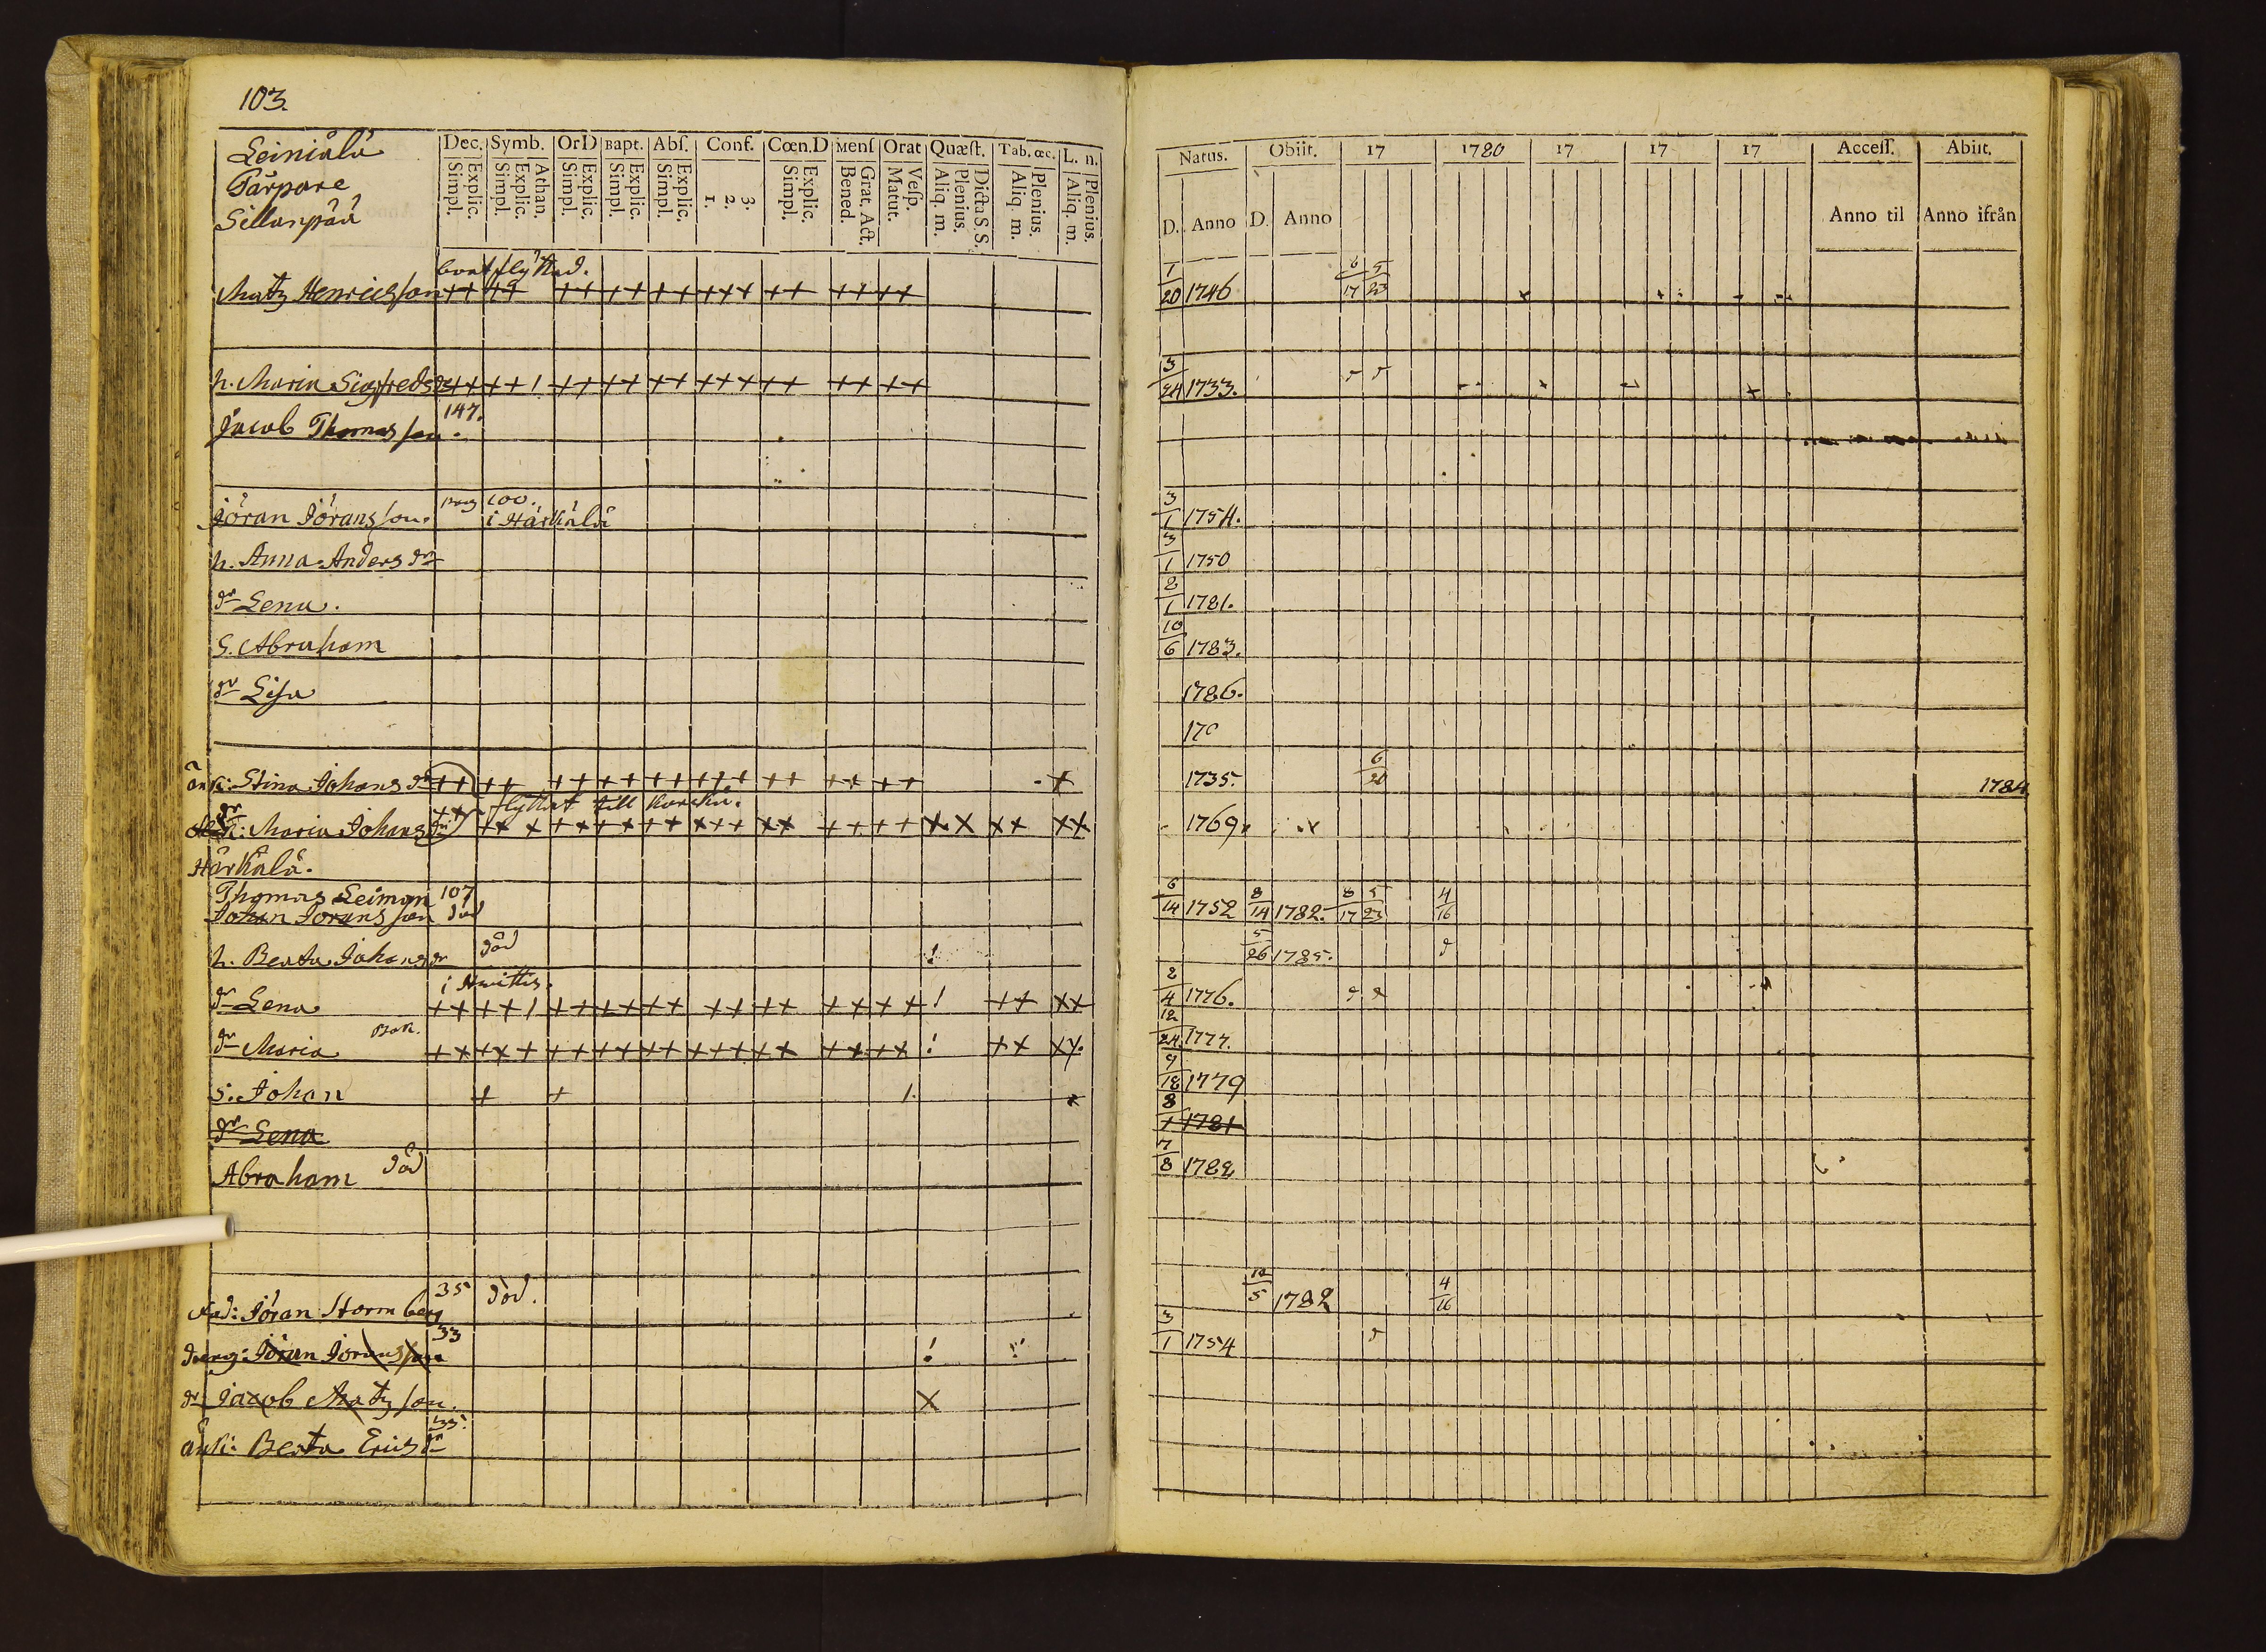 103.
Leiniälä
Tårpare
Sillanpää
Dec. Symb. OrD Bapt. Abſ. Conf. Cœn.D Menſ Orat Quæſt. Tab. œc. L. n.
Simpl. Explic. Simpl. Explic. Athan. Simpl. Explic. Simpl. Explic. Simpl. Explic. 1. 2. 3. Simpl. Explic. Bened. Grat. Act. Matut. Veſp. Aliq. m. Plenius. Dicta S.S. Aliq. m. Plenius. Aliq. m. Plenius.
Natus. Obiit. 17 1780 17 17 17 Acceſſ. Abiit.
D. Anno D. Anno Anno til Anno ifrån
bortflyttad.
Matz Henricsson ++ ++ ++ ++ ++ +++ ++ ++ ++ 1/20 1746 6/17 5/23
h. Maria Sigfredsdr ++ ++ 1 ++ ++ ++ +++ ++ ++ ++ 3/24 1733.
147.
Jacob Thomasson.
pag 100.
Jöran Jöransson. i Härkälä 3/1 1754.
h. Anna Anders dr 3/1 1750
dr Lena. 2/1 1781.
S. Abraham 10/6 1783.
dr Lisa 1786.
170
änk: Stina Johans dr ++ ++ ++ ++ ++ +++ ++ ++ ++ + 1735. 6/20 1784
flyttat till
dr Maria Johans dr ++ ++ + ++ ++ ++ +++ ++ ++ ++ X X ++ ++ 1769.
Härkälä.
Thomas Leiman 107
Johan Joransson död 6/14 1752 8/14 1782. 6/17 5/23 4/16
h. Beata Johansdr död ! 5/26 1785.
i Hvittis.
dr Lena ++ ++ 1 ++ ++ ++ ++ ++ ++ ++ ! ++ ++ 2/4 1776.
dr Maria ++ ++ + ++ ++ ++ +++ ++ ++ ++ ! ++ ++ 12/24 1777.
S. Johan + + 1. + 9/18 1779
dr Lena 8/1 1781
Abraham död 7/8 1782
35 död.
Jöran Stormberg 10/5 1782 4/16
33
dreng: Jöran Joransson ! 3/1 1754
dr Jacob Matzson. X
35.
änk: Beata Erics dr